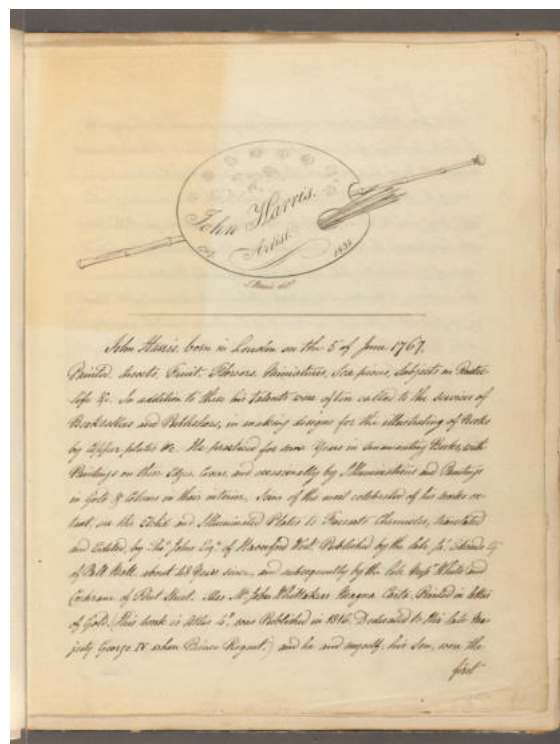 John Harris.
Artist.
1834
J. Harris delt.
John Harris, born in London on the 5 of June 1767,
Painted Insects, Fruit, Flowers, Miniatures, Sea pieces, Subjects in Rustic
life &c. In addition to these his talents were often called to the services of
Booksellers and Publishers, in making designs for the illustrating of Books
by Copper plates &c. He practiced for some Years in ornamenting Books, with
Paintings on their Edges, Covers, and occasionally by Illuminations and Paintings
in Gold & Colours on their interior. Some of the most celebrated of his works ex-
tant, are the Etch'd and Illuminated Plates to Froissarts Chronicles, translated
and Edited, by Thos. Johnes Esqr. of Haverford West Published by the late, Js. Edwards Esq
of Pall Mall, about 48 Years since, and subsequently by the late Messrs White and
Cochrane of Fleet Street. Also Mr. John Whittakers Magna Carta, Printed in letters
of Gold. (This book is Atlas 4o, was Published in 1816, Dedicated to His late Ma-
jesty George IV when Prince Regent.) and he and myself, his Son, were the
first